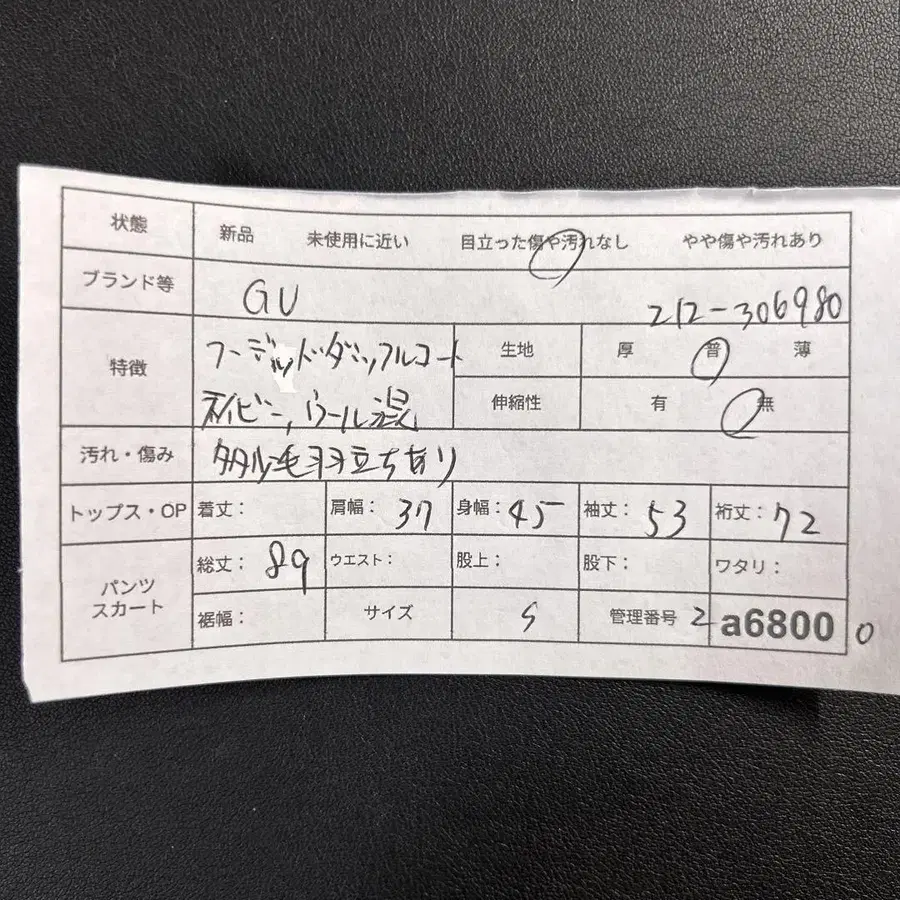 状態 新品 未使用に近い 目立った傷や汚れなし やや傷や汚れあり
ブランド等 GU 212-306980
特徴 フーデッドダッフルコート 生地 厚 普 薄
ネイビー, ウール混 伸縮性 有 無
汚れ・傷み 毛羽立ちあり
トップス・OP 着丈: 肩幅: 37 身幅: 45 袖丈: 53 裄丈: 72
パンツ スカート 総丈: 89 ウエスト: 股上: 股下: ワタリ:
裾幅: サイズ S 管理番号 2 a6800 0